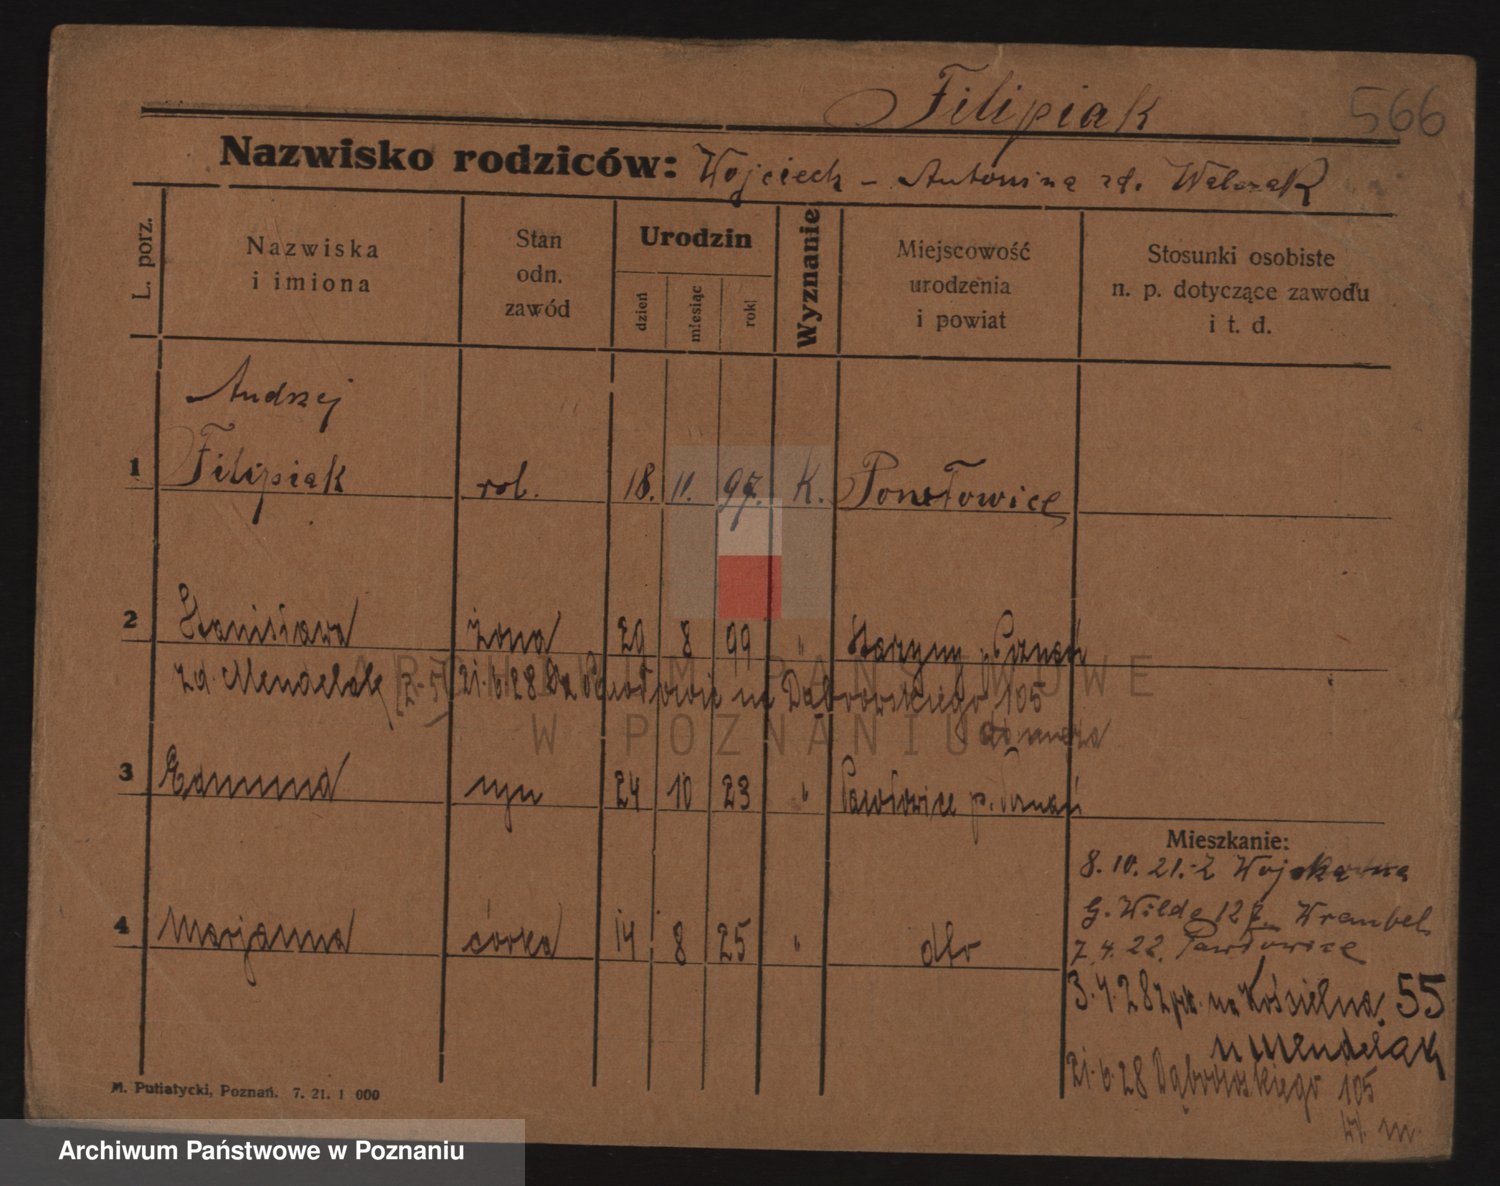 Filipiak
566
Nazwisko rodziców: Wojciech - Antonina zd. Walczak
L. porz.
Nazwiska
i imiona
Stan
odn.
zawód
Urodzin
dzień
miesiąc
rok
Wyznanie
Miejscowość
urodzenia
i powiat
Stosunki osobiste
n. p. dotyczące zawodu
i t. d.
Andrzej
1 Filipiak rol. 18. 11. 97. K. Pawłowice
2 Stanisława żona 29 8 99 " Starzyny p. Poznań
zd. Mendelak 21.6.28 Pawłowic na Dąbrowskiego 105
do męża
3 Edmund syn 24 10 23 " Pawłowice p. Poznań
Mieszkanie:
8.10.21.-Z
G. Wilda 127
4 Marjanna córka 14 8 25 " dto
7.4.22. Pawłowice
3.4.28 na Kościelna 55
u Mendelak
21.6.28 Dąbrowskiego 105
M. Putiatycki, Poznań. 7. 21. 1 000
ARCHIWUM PAŃSTWOWE
W POZNANIU
Archiwum Państwowe w Poznaniu